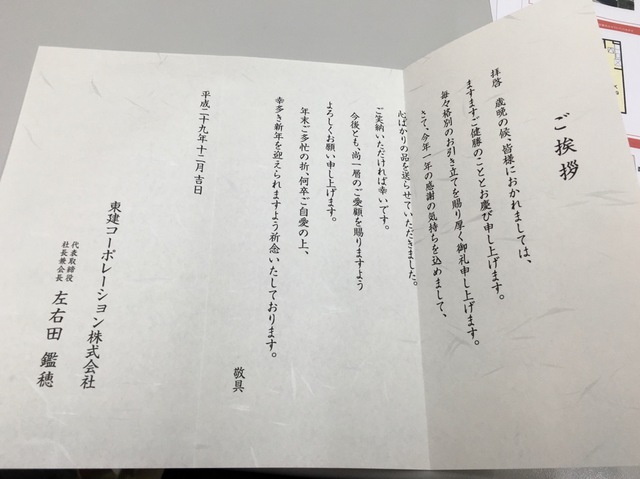 ご挨拶
拝啓 歳晩の候、皆様におかれましては、
ますますご健勝のこととお慶び申し上げます。
毎々格別のお引き立てを賜り厚く御礼申し上げます。
さて、今年一年の感謝の気持ちを込めまして、
心ばかりの品を送らせていただきました。
ご笑納いただければ幸いです。
今後とも、尚一層のご愛顧を賜りますよう
よろしくお願い申し上げます。
年末ご多忙の折、何卒ご自愛の上、
幸多き新年を迎えられますよう祈念いたしております。
敬具
平成二十九年十二月吉日
東建コーポレーション株式会社
代表取締役
社長兼会長 左右田 鑑穂